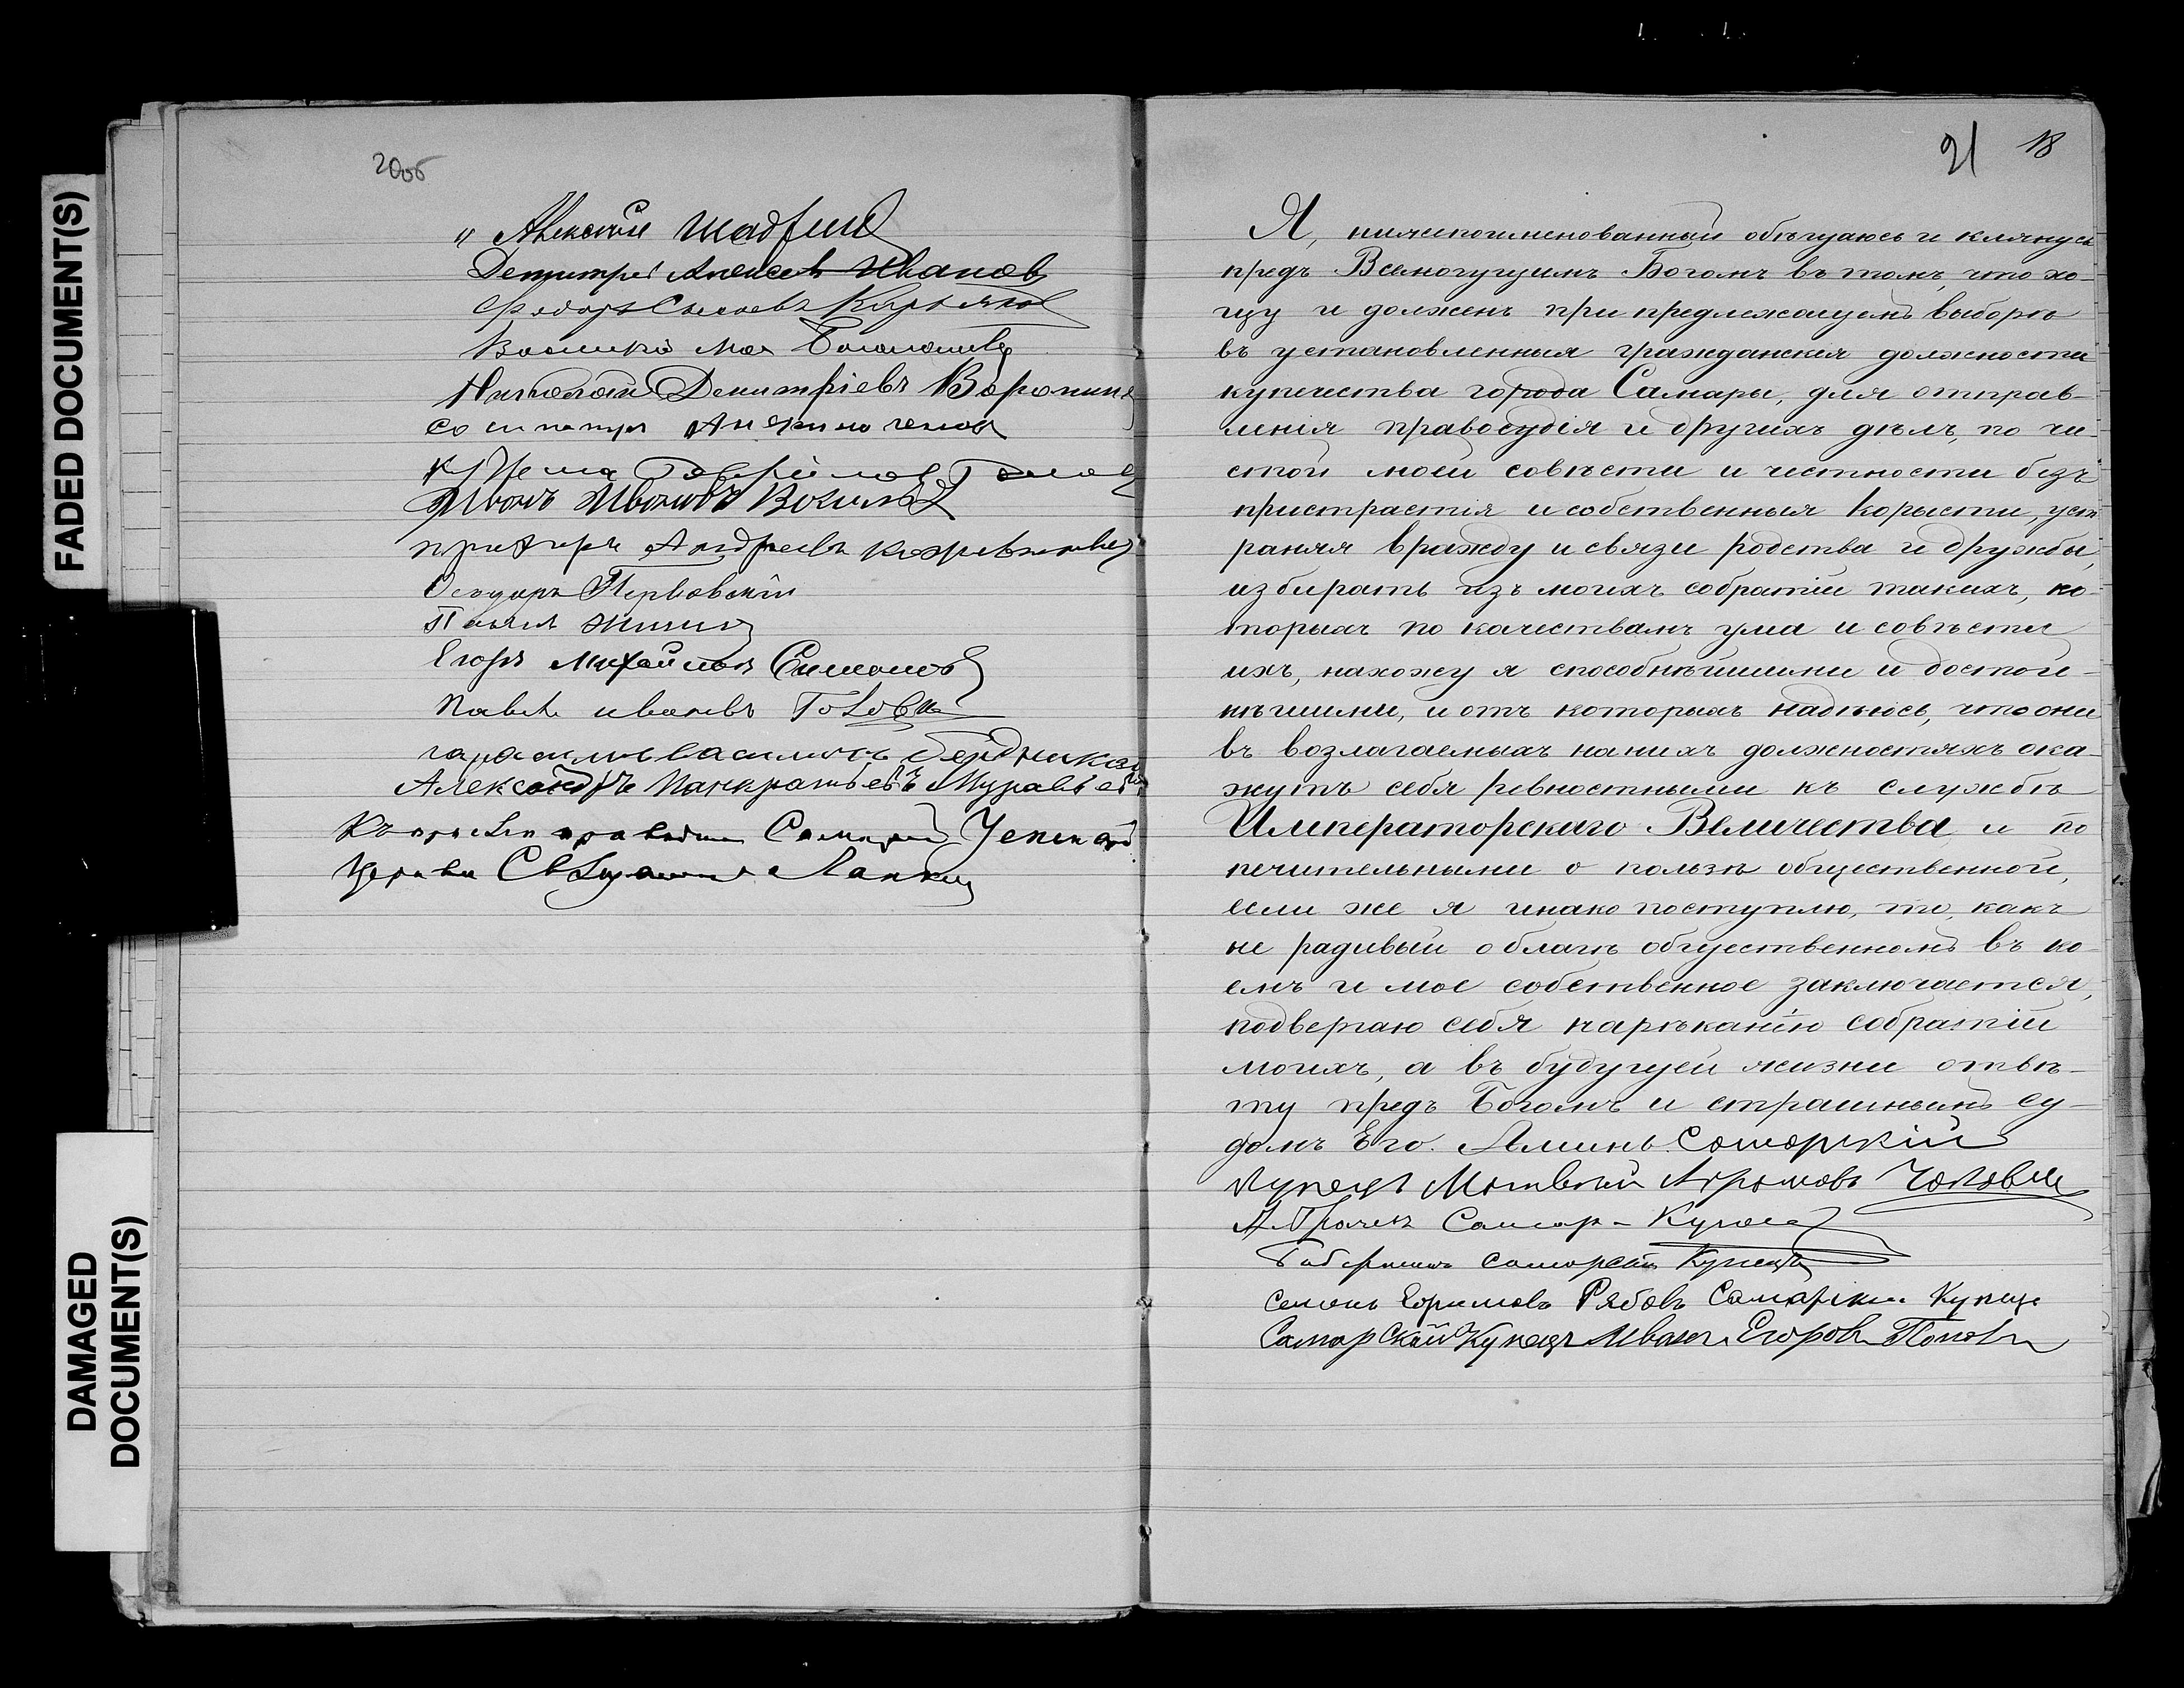 FADED DOCUMENT(S)
DAMAGED
DOCUMENT(S)
20об
" Алексѣй Шадрин
Демитрей Алексеевъ Иванов
Федоръ Сысоевъ
Василий
Николай Демитріевъ Воронинъ
Гаврілов
Иванъ Ивановъ
Андреевъ Кожевников
Перховскій
Павел
Егоръ Михайловъ Симонов
Павелъ ивановъ
василичъ бердников
Александръ Панкратьевъ Муравьевъ
Къ присяге приводил
Церкви Священник
21 18
Я, нижепоименованный обѣщаюсь и клянусь
предъ Всемогущимъ Богомъ въ томъ, что хо-
щу и долженъ при предлежащемъ выборѣ
въ установленныя гражданскія должности
купечества города Самары, для отправ-
ленія правосудія и другихъ дѣлъ, по чи-
стой моей совѣсти и честности безъ
пристрастія и собственныя корысти, уст
раняя вражду и связи родства и дружбы,
избирать изъ моихъ собратій такихъ, ко-
торыхъ по качествамъ ума и совѣсти
ихъ, нахожу я способнѣйшими и достой-
нѣйшими, и отъ которыхъ надѣюсь, что они
въ возлагаемыхъ на нихъ должностяхъ ока-
жутъ себя ревностными къ службѣ
Императорскаго Величества и по
печительными о пользѣ общественной,
если же я инако поступлю, то, какъ
не радивый о благѣ общественномъ въ ко-
емъ и мое собственное заключается,
подвергаю себя нареканію собратій
моихъ, а въ будущей жизни отвѣ-
ту предъ Богомъ и страшнымъ су-
домъ Его. Аминь. Самарскій
купецъ Матвѣй
Самар-
самарскій Купецъ
Семенъ Ефимовъ Рябовъ Самарски Купец
Самарской Купецъ Иванъ Егоровъ Поповъ